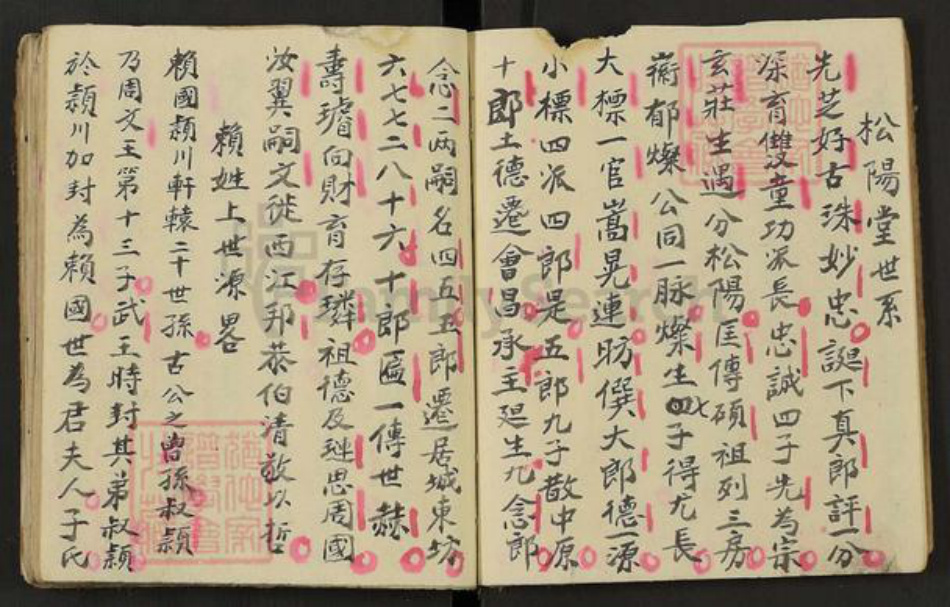 松陽堂世系
先芝好古珠妙忠誕下真郎評一分
深育雙童功派長忠誠四子先為宗
玄莊生遇分松陽匡傳碩祖列三房
衛郁燦公同一脉燦生四七子得尤長
大標一官嵩晃連昉僎大郎德一源
小標四派四郎是五郎九子散中原
十郎土德遷會昌承主廷生九念郎
念二兩嗣名四五五郎遷居城東坊
六七七二八十六十郎匾一傳世赫
壽璿向財育存璘祖德及璉思周國
汝翼嗣文徙西江邦恭伯清敬以哲
賴姓上世源畧
賴國潁川軒轅二十世孫古公之曾孫叔潁
乃周文王第十三子武王時封其弟叔潁
於潁川加封為賴國世為君夫人子氏
FamilySearch